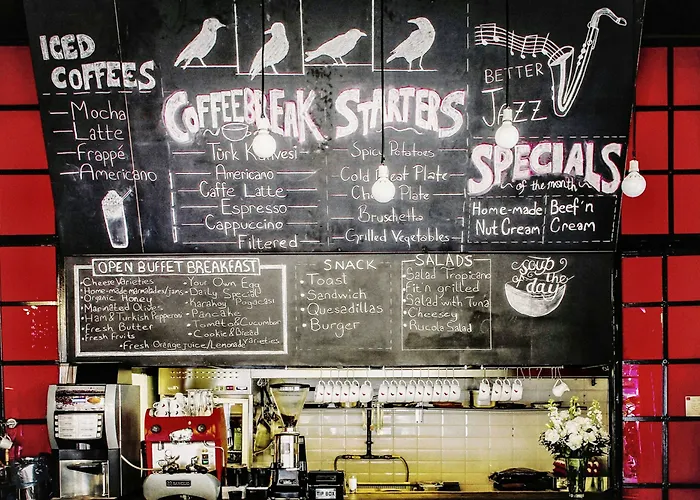 ICED
COFFEES
Mocha
Latte
Frappé
Americano
COFFEEBREAK
Türk Kahvesi
Americano
Caffe Latte
Espresso
Cappuccino
Filtered
STARTERS
Spicy Potatoes
Cold Meat Plate
Cheese Plate
Bruschetta
Grilled Vegetables
BETTER
JAZZ
SPECIALS
of the month
Home-made
Nut Cream
Beef'n
Cream
OPEN BUFFET BREAKFAST
• Cheese Varieties
• Home-made marmalades/jams
• Organic Honey
• Marinated Olives
• Ham & Turkish Pepperoni
• Fresh Butter
• Fresh Fruits
• Your Own Egg
• Daily Special
• Karaköy Poğaçası
• Pancake
• Tomato & Cucumber
• Cookie & Bread
Varieties
• Fresh Orange juice/Lemonade
SNACK
• Toast
• Sandwich
• Quesadillas
• Burger
SALADS
• Salad Tropicano
• Fit'n grilled
• Salad with Tuna
• Cheesey
• Rucola Salad
soup
of THE
day
TIP BOX